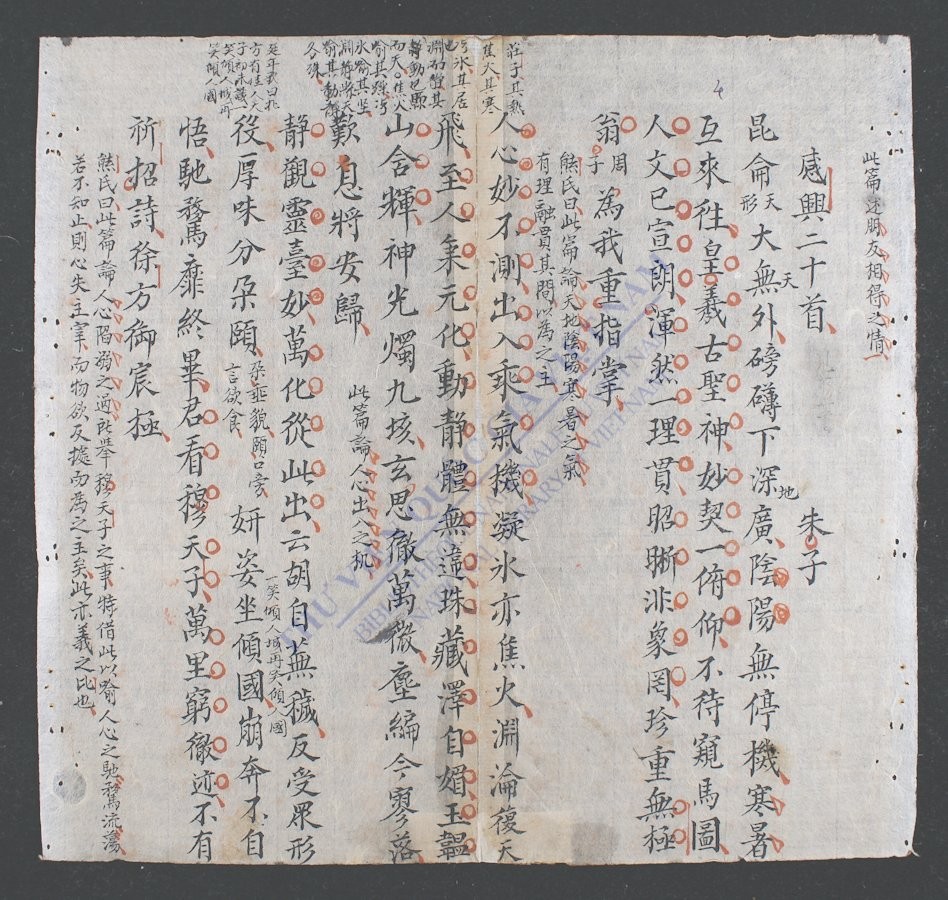 此篇述朋友相得之情
感興二十首 朱子
昆侖天形大無外天磅礡下深地廣陰陽無停機寒暑
互來往皇羲古聖神妙契一俯仰不待窺馬圖
人文已宣朗渾然一理貫昭晰非象罔珍重無極
翁周子為我重指掌
熊氏曰此篇論天地陰陽寒暑之氣
有理融貫其間以為之主
莊子其熱
焦火其寒
氷其居
也淵而静其
動也縣
而天焦火
喻其
氷喻其
淵静天
喻其動静
各殊
人心妙不測出入乘氣機凝氷亦焦火淵淪復天
飛至人秉元化動静體無違珠藏澤自媚玉韞
山含輝神光燭九垓玄思徹萬微塵編今寥落
歎息將安歸
此篇論人心出入之机
延年歌曰北
方有佳人
笑傾人城再
笑傾人國
静觀靈臺妙萬化從此出云胡自蕪穢反受眾形
役厚味分朶頤
朶垂貌頤口旁
言欲食
妍姿坐傾國崩奔不自
一笑傾人城再笑傾人國
悟馳騖靡終畢君看穆天子萬里窮徹迹不有
祈招詩徐方御宸極
熊氏曰此篇論人心陷溺之過所舉穆天子之事特借此以喻人心之馳騖流蕩
若不知止則心失主宰而物欲反據而為之主矣此亦義之比也
THU VIEN QUOC GIA VIETNAM
BIBLIOTHEQUE NATIONALE DU VIETNAM
NATIONAL LIBRARY OF VIETNAM